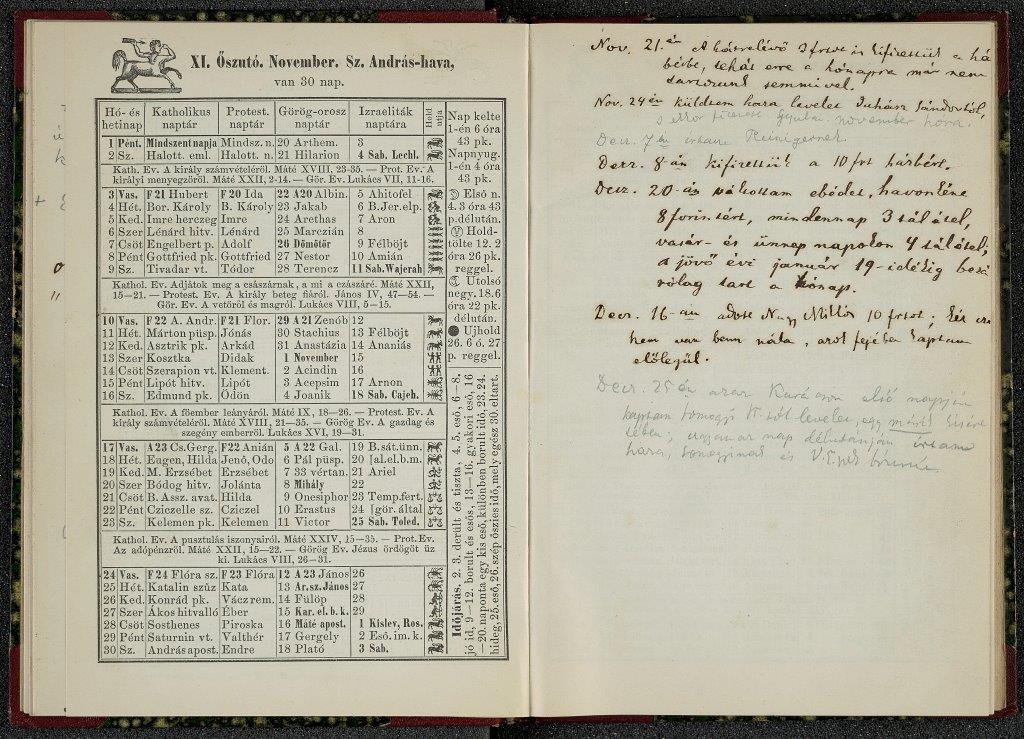 XI. Őszutó. November. Sz. András-hava,
van 30 nap.
Hó- és hetinap | Katholikus naptár | Protest. naptár | Görög-orosz naptár | Izraeliták naptára | Hold utja
1 Pént. Mindszentnapja Mindsz. n. 20 Arthem. 3
2 Sz. Halott. eml. Halott. n. 21 Hilarion 4 Sab. Lechl.
Kath. Ev. A király számvételéről. Máté XVIII, 23-35. — Prot. Ev. A
királyi menyegzőről. Máté XXII, 2-14. — Gör. Ev. Lukács VII, 11-16.
3 Vas. F 21 Hubert F 20 Ida 22 A 20 Albin. 5 Ahitofel
4 Hét. Bor. Károly B. Károly 23 Jakab 6 B.Jer.elp.
5 Ked. Imre herczeg Imre 24 Arethas 7 Aron
6 Szer Lénárd hitv. Lénárd 25 Marczián 8
7 Csöt Engelbert p. Adolf 26 Dömötör 9 Félböjt
8 Pént Gottfried pk. Gottfried 27 Nestor 10 Amián
9 Sz. Tivadar vt. Tódor 28 Terencz 11 Sab.Wajerah
Kathol. Ev. Adjátok meg a császárnak, a mi a czászáré. Máté XXII,
15—21. — Protest. Ev. A király beteg fiáról. János IV, 47—54. —
Gör. Ev. A vetőről és magról. Lukács VIII, 5—15.
10 Vas. F 22 A. Andr. F 21 Flor. 29 A 21 Zenób 12
11 Hét. Márton püsp. Jónás 30 Stachius 13 Félböjt
12 Ked. Asztrik pk. Arkád 31 Anastázia 14 Ananiás
13 Szer Kosztka Didak 1 November 15
14 Csöt Szerapion vt. Klement. 2 Acindin 16
15 Pént Lipót hitv. Lipót 3 Acepsim 17 Arnon
16 Sz. Edmund pk. Ödön 4 Joanik 18 Sab. Cajeh.
Kathol. Ev. A főember leányáról. Máté IX, 18—26. — Protest. Ev. A
király számvételéről. Máté XVIII, 21—35. — Görög Ev. A gazdag és
szegény emberről. Lukács XVI, 19—31.
17 Vas. A 23 Cs.Gerg. F 22 Anián 5 A 22 Gal. 19 B.sát.ünn.
18 Hét. Eugen, Hilda Jenő, Odo 6 Pál püsp. 20 Jal.el.b.m.
19 Ked. M. Erzsébet Erzsébet 7 33 vértan. 21 Ariel
20 Szer Bódog hitv. Jolánta 8 Mihály 22
21 Csöt B. Assz. avat. Hilda 9 Onesiphor 23 Temp.fert.
22 Pént Cziczelle sz. Cziczel 10 Erastus 24 Igör. által
23 Sz. Kelemen pk. Kelemen 11 Victor 25 Sab. Toled.
Kathol. Ev. A pusztulás iszonyairól. Máté XXIV, 15—35. — Prot.Ev.
Az adópénzről. Máté XXII, 15—22. — Görög Ev. Jézus ördögöt űz
ki. Lukács VIII, 26—31.
24 Vas. F 24 Flóra sz. F 23 Flóra 12 A 23 János 26
25 Hét. Katalin szűz Kata 13 Ar.sz.János 27
26 Ked. Konrád pk. Vácz rem. 14 Fülöp 28
27 Szer Ákos hitvalló Éber 15 Kar. el. b. k. 29
28 Csöt Sosthenes Piroska 16 Máté apost. 1 Kislev, Ros.
29 Pént Saturnin vt. Valthér 17 Gergely 2 Eső. im. k.
30 Sz. András apost. Endre 18 Plató 3 Sab.
Nap kelte
1-én 6 óra
43 pk.
Napnyug.
1-én 4 óra
43 pk.
Első n.
4. 3 óra 43
p.délután.
Hold-
tölte 12. 2
óra 26 pk.
reggel.
Utolsó
negy. 18.6
óra 22 pk.
délután.
Ujhold
26. 6 ó. 27
p. reggel.
Időjárás. 2. 3. derült és tiszta, 4. 5. eső, 6—8.
jó id, 9—12. borult és esős, 13—16. gyakori eső, 16
—20. naponta egy kis eső, különben borult idő, 23.24.
hideg, 25. eső, 26. szép őszies idő, mely egész 30. eltart.
Nov. 21.én A hátrelévő 3 frtot is kifizettük a há
bérbe, tehát erre a hónapra már nem
tartozunk semmivel.
Nov. 24én küldtem haza levelet Juhász Sándortól,
november hóra.
Decz. 7én
Decz. 8-án kifizettük a 10 frt házbért.
Decz. 20-án váltottam ebédet, havonként
8 forintért, mindennap 3 tál étel,
vasár- és ünnepnapokon 4 tál étel;
a jövő évi január 19-idéig
tart a hónap.
Decz. 16-án adott Nagy Miklós 10 frtot;
nem van benn nála, azt fejében kaptam
előlegül.
Decz. 25én azaz Karácson első napján
kaptam levelet, egy
ugyanaz nap délutánján írtam
haza, és